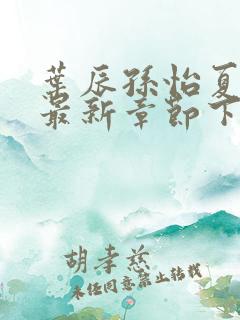 葉辰孫怡夏
最新章節下
胡孝慈
未经同意禁止转载